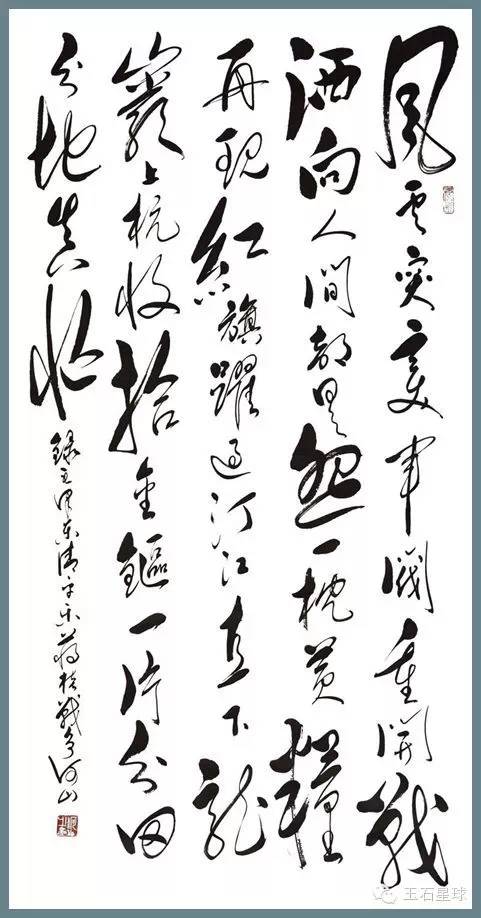 風云突变軍閥重開戰
洒向人間都是怨一枕黄糧
再现紅旗躍過汀江直下龍
巖上杭收拾金鏂一片分田
分地真忙
錄毛泽东清平乐蒋桂戰争河山
玉石星球